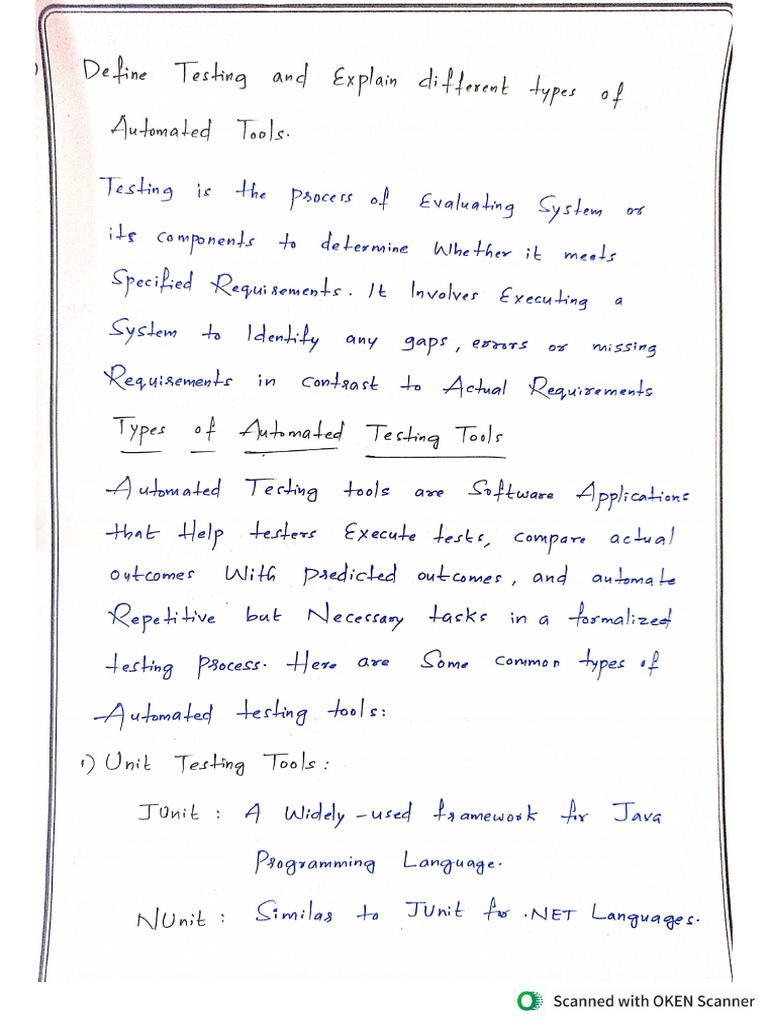 )
Define Testing and Explain different types of
Automated Tools.
Testing is the process of Evaluating System or
its components to determine Whether it meets
Specified Requirements. It Involves Executing a
System to Identify any gaps, errors or missing
Requirements in contrast to Actual Requirements
Types of Automated Testing Tools
Automated Testing tools are Software Applications
that Help testers Execute tests, compare actual
outcomes With predicted outcomes, and automate
Repetitive but Necessary tasks in a formalized
testing process. Here are Some common types of
Automated testing tools:
1) Unit Testing Tools:
JUnit : A Widely-used framework for Java
Programming Language.
NUnit : Similar to JUnit for .NET Languages.
Scanned with OKEN Scanner